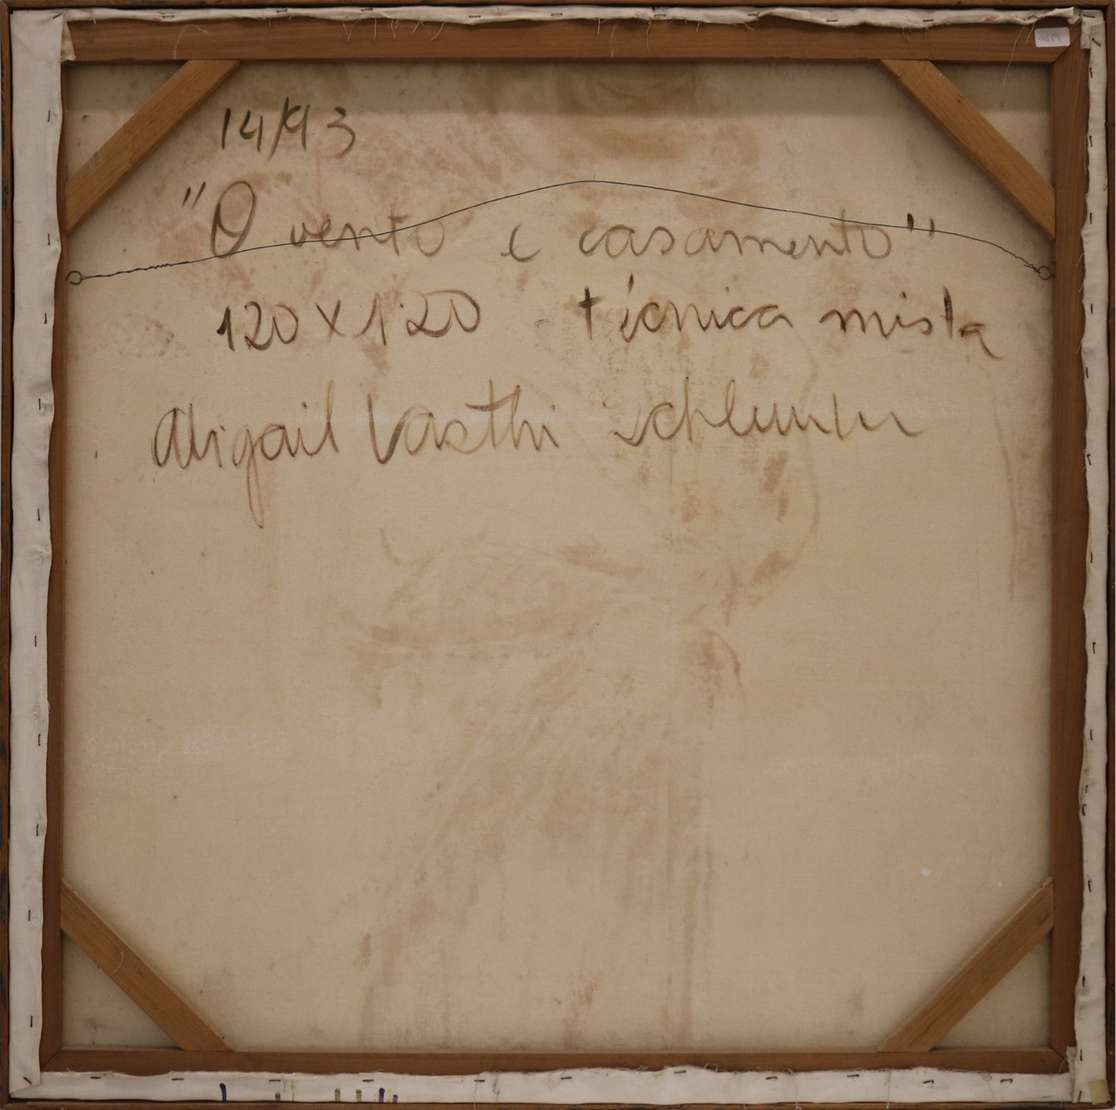 14/93
"O vento e casamento"
120 x 1.20 técnica mista
Abigail Vasthi Schlemm